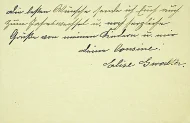 die besten Wünsche sende ich Euch auch
zum Jahreswechsel u. noch herzliche
Grüße von meinen Kindern u. mir
deine Cousine.